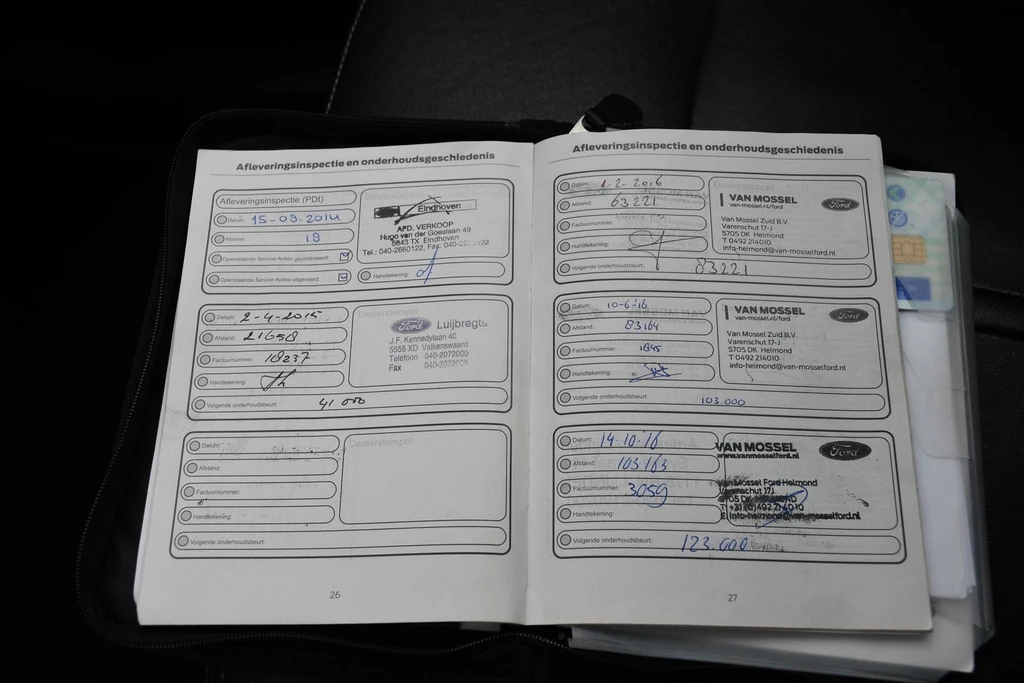 Afleveringsinspectie en onderhoudsgeschiedenis
Afleveringsinspectie (PDI)
Datum: 15-09-2014
Afstand: 19
Openstaande Service-Acties gecontroleerd:
Openstaande Service-Acties uitgevoerd:
Eindhoven
AFD. VERKOOP
Hugo van der Goeslaan 49
5643 TX Eindhoven
Tel.: 040-2660122, Fax: 040-
Handtekening:
Datum: 2-4-2015
Afstand: 21658
Factuurnummer: 18237
Handtekening:
Volgende onderhoudsbeurt: 41 000
Dealerstempel
Ford Luijbregts
J.F. Kennedylaan 40
5555 XD Valkenswaard
Telefoon 040-2072000
Fax
Datum:
Afstand:
Factuurnummer:
Handtekening:
Volgende onderhoudsbeurt:
Dealerstempel
26
Afleveringsinspectie en onderhoudsgeschiedenis
Datum: 1-2-2016
Afstand: 63221
Factuurnummer:
Handtekening:
Volgende onderhoudsbeurt: 83221
VAN MOSSEL Ford
van-mossel.nl/ford
Van Mossel Zuid B.V.
Varenschut 17-J
5705 DK Helmond
T 0492 214010
info-helmond@van-mosselford.nl
Datum: 10-6-16
Afstand: 83164
Factuurnummer: 1845
Handtekening:
Volgende onderhoudsbeurt: 103.000
VAN MOSSEL Ford
van-mossel.nl/ford
Van Mossel Zuid B.V.
Varenschut 17-J
5705 DK Helmond
T 0492 214010
info-helmond@van-mosselford.nl
Datum: 14-10-16
Afstand: 103163
Factuurnummer: 3059
Handtekening:
Volgende onderhoudsbeurt: 123.000
VAN MOSSEL Ford
www.vanmosselford.nl
Van Mossel Ford Helmond
Varenschut 17J
5705 DK HELMOND
T: +31 (0)492 214010
E: info-helmond@van-mosselford.nl
27